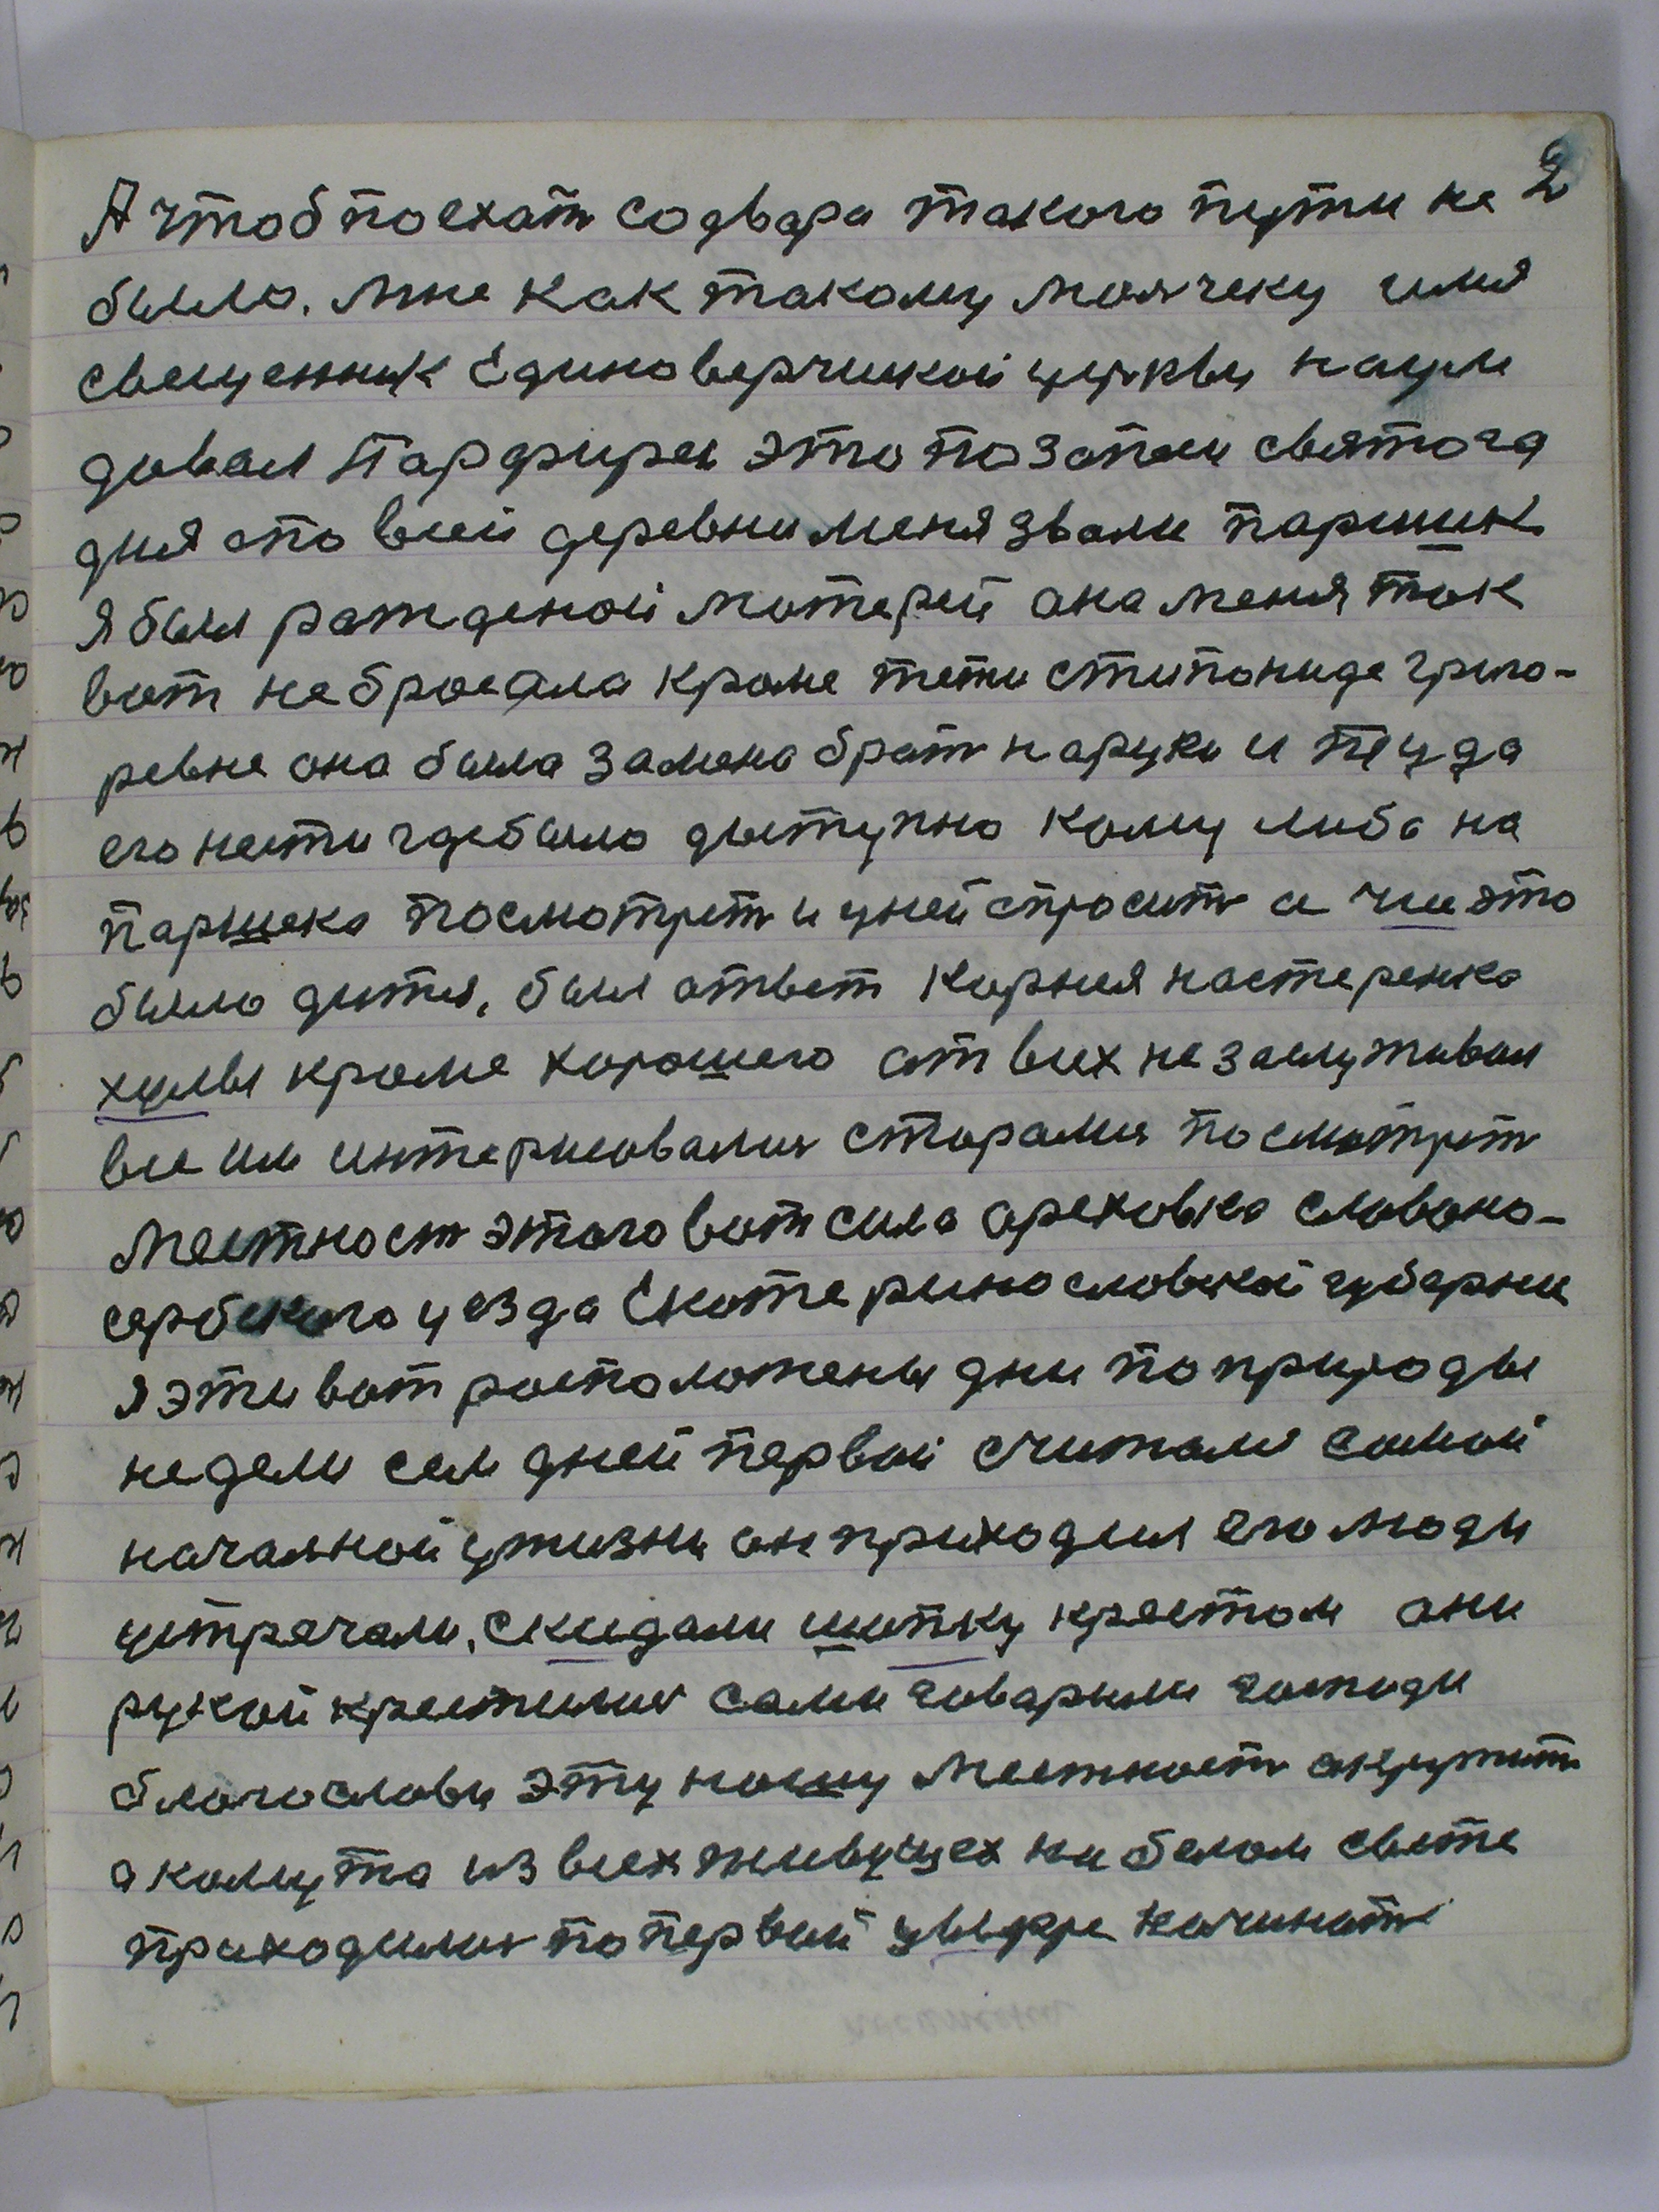 2
А чтоб поехать со двара такого пути не
было. Мне как такому малчеку имя
свещенник Единоверчиской церквы нацы
довал Парфирем это по запеси святога
дня а по всей деревни меня звали паршик
я был рожденой матерей ана меня так
вот не бросала кроме тети стипониде григо-
ревне она была замена брать на руки и туда
его нести где было дыступно кому либа на
паршека посмотреть и у ней спросить а чие это
было дитя, был атвет Корнея настеренка
хулы кроме хорошего от всех не заслуживал
все им интересовались старались посмотреть
местность этого вот села ореховка славяно-
сербского уезда Екатеринославской губерни
я эти вот расположены дни по природы
недели сем дней первой считали самой
началной у жизни он приходил его люди
устречали, скидали шапку крестом они
рукой крестились сами говарили господи
благослови эту нашу местность окружить
а кому то из всех живущех на белом свете
приходилось по первай цыфре начинать